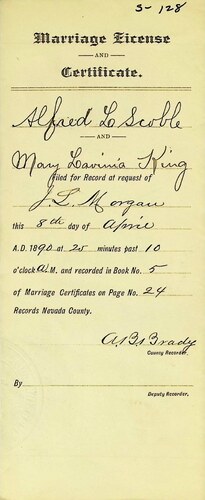 5-128
Marriage License
AND
Certificate.
Alfred L Scoble
AND
Mary Lavinia King
filed for Record at request of
J. L. Morgan
this 8th day of April
A.D. 1890 at 25 minutes past 10
o'clock A.M. and recorded in Book No. 5
of Marriage Certificates on Page No. 24
Records Nevada County.
A. B. Brady
County Recorder.
By
Deputy Recorder.